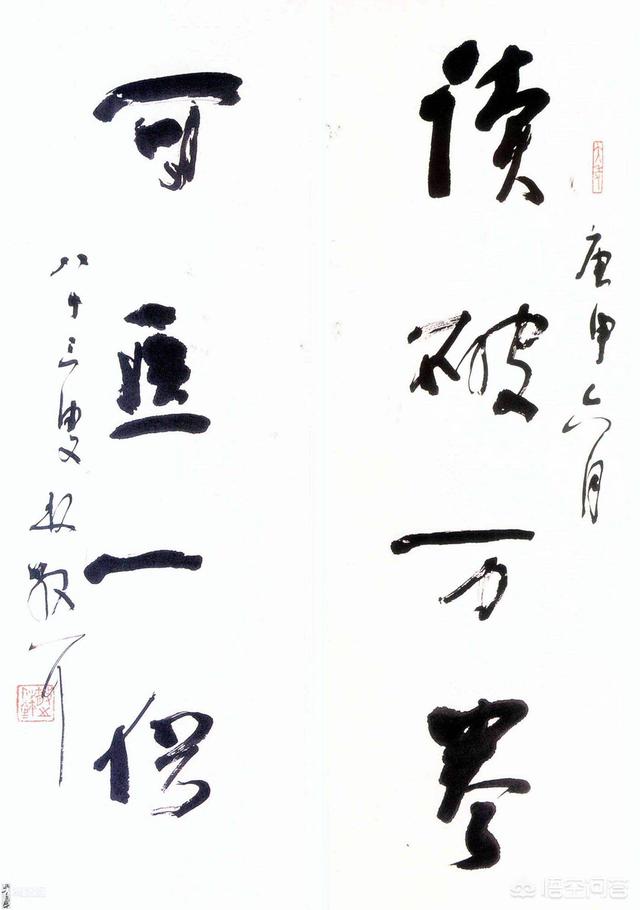 庚申六月
读破万卷
可医一俗
八十三叟林散耳
悟空问答